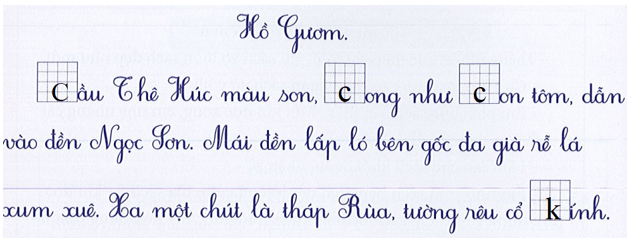 Hồ Gươm.
Cầu Thê Húc màu son, cong như con tôm, dẫn
vào đền Ngọc Sơn. Mái đền lấp ló bên gốc đa già rễ lá
xum xuê. Xa một chút là tháp Rùa, tường rêu cổ kính.